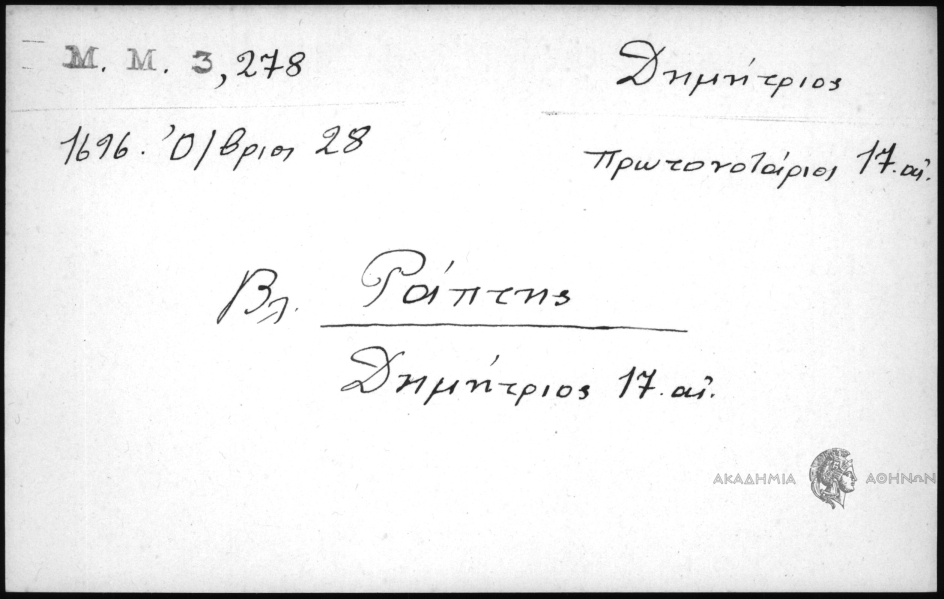 Μ. Μ. 3, 278
Δημήτριος
1696. Ὀ/βριος 28
πρωτονοτάριος 17. αἰ.
Βλ. Ράπτης
Δημήτριος 17. αἰ.
ΑΚΑΔΗΜΙΑ ΑΘΗΝΩΝ